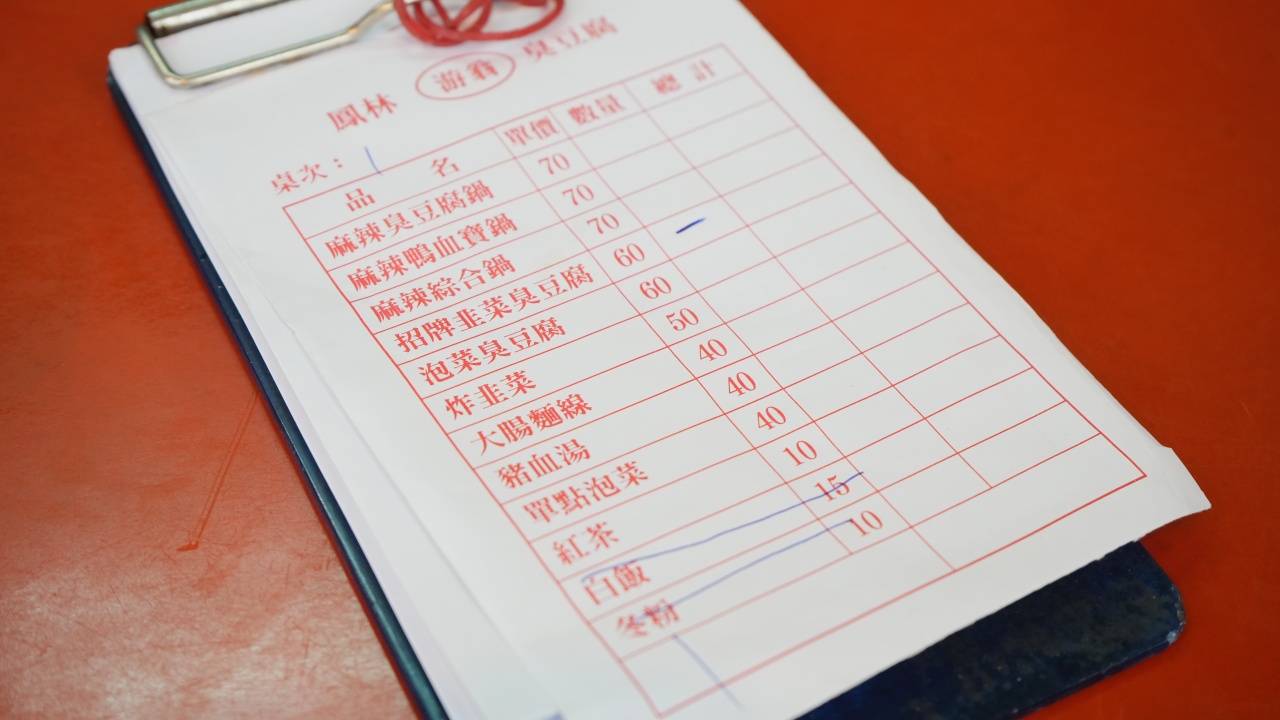 鳳林 游翁 臭豆腐
桌次：1
品 名 單價 數量 總計
麻辣臭豆腐鍋 70
麻辣鴨血寶鍋 70
麻辣綜合鍋 70
招牌韭菜臭豆腐 60 一
泡菜臭豆腐 60
炸韭菜 50
大腸麵線 40
豬血湯 40
單點泡菜 40
紅茶 10
白飯 15
冬粉 10